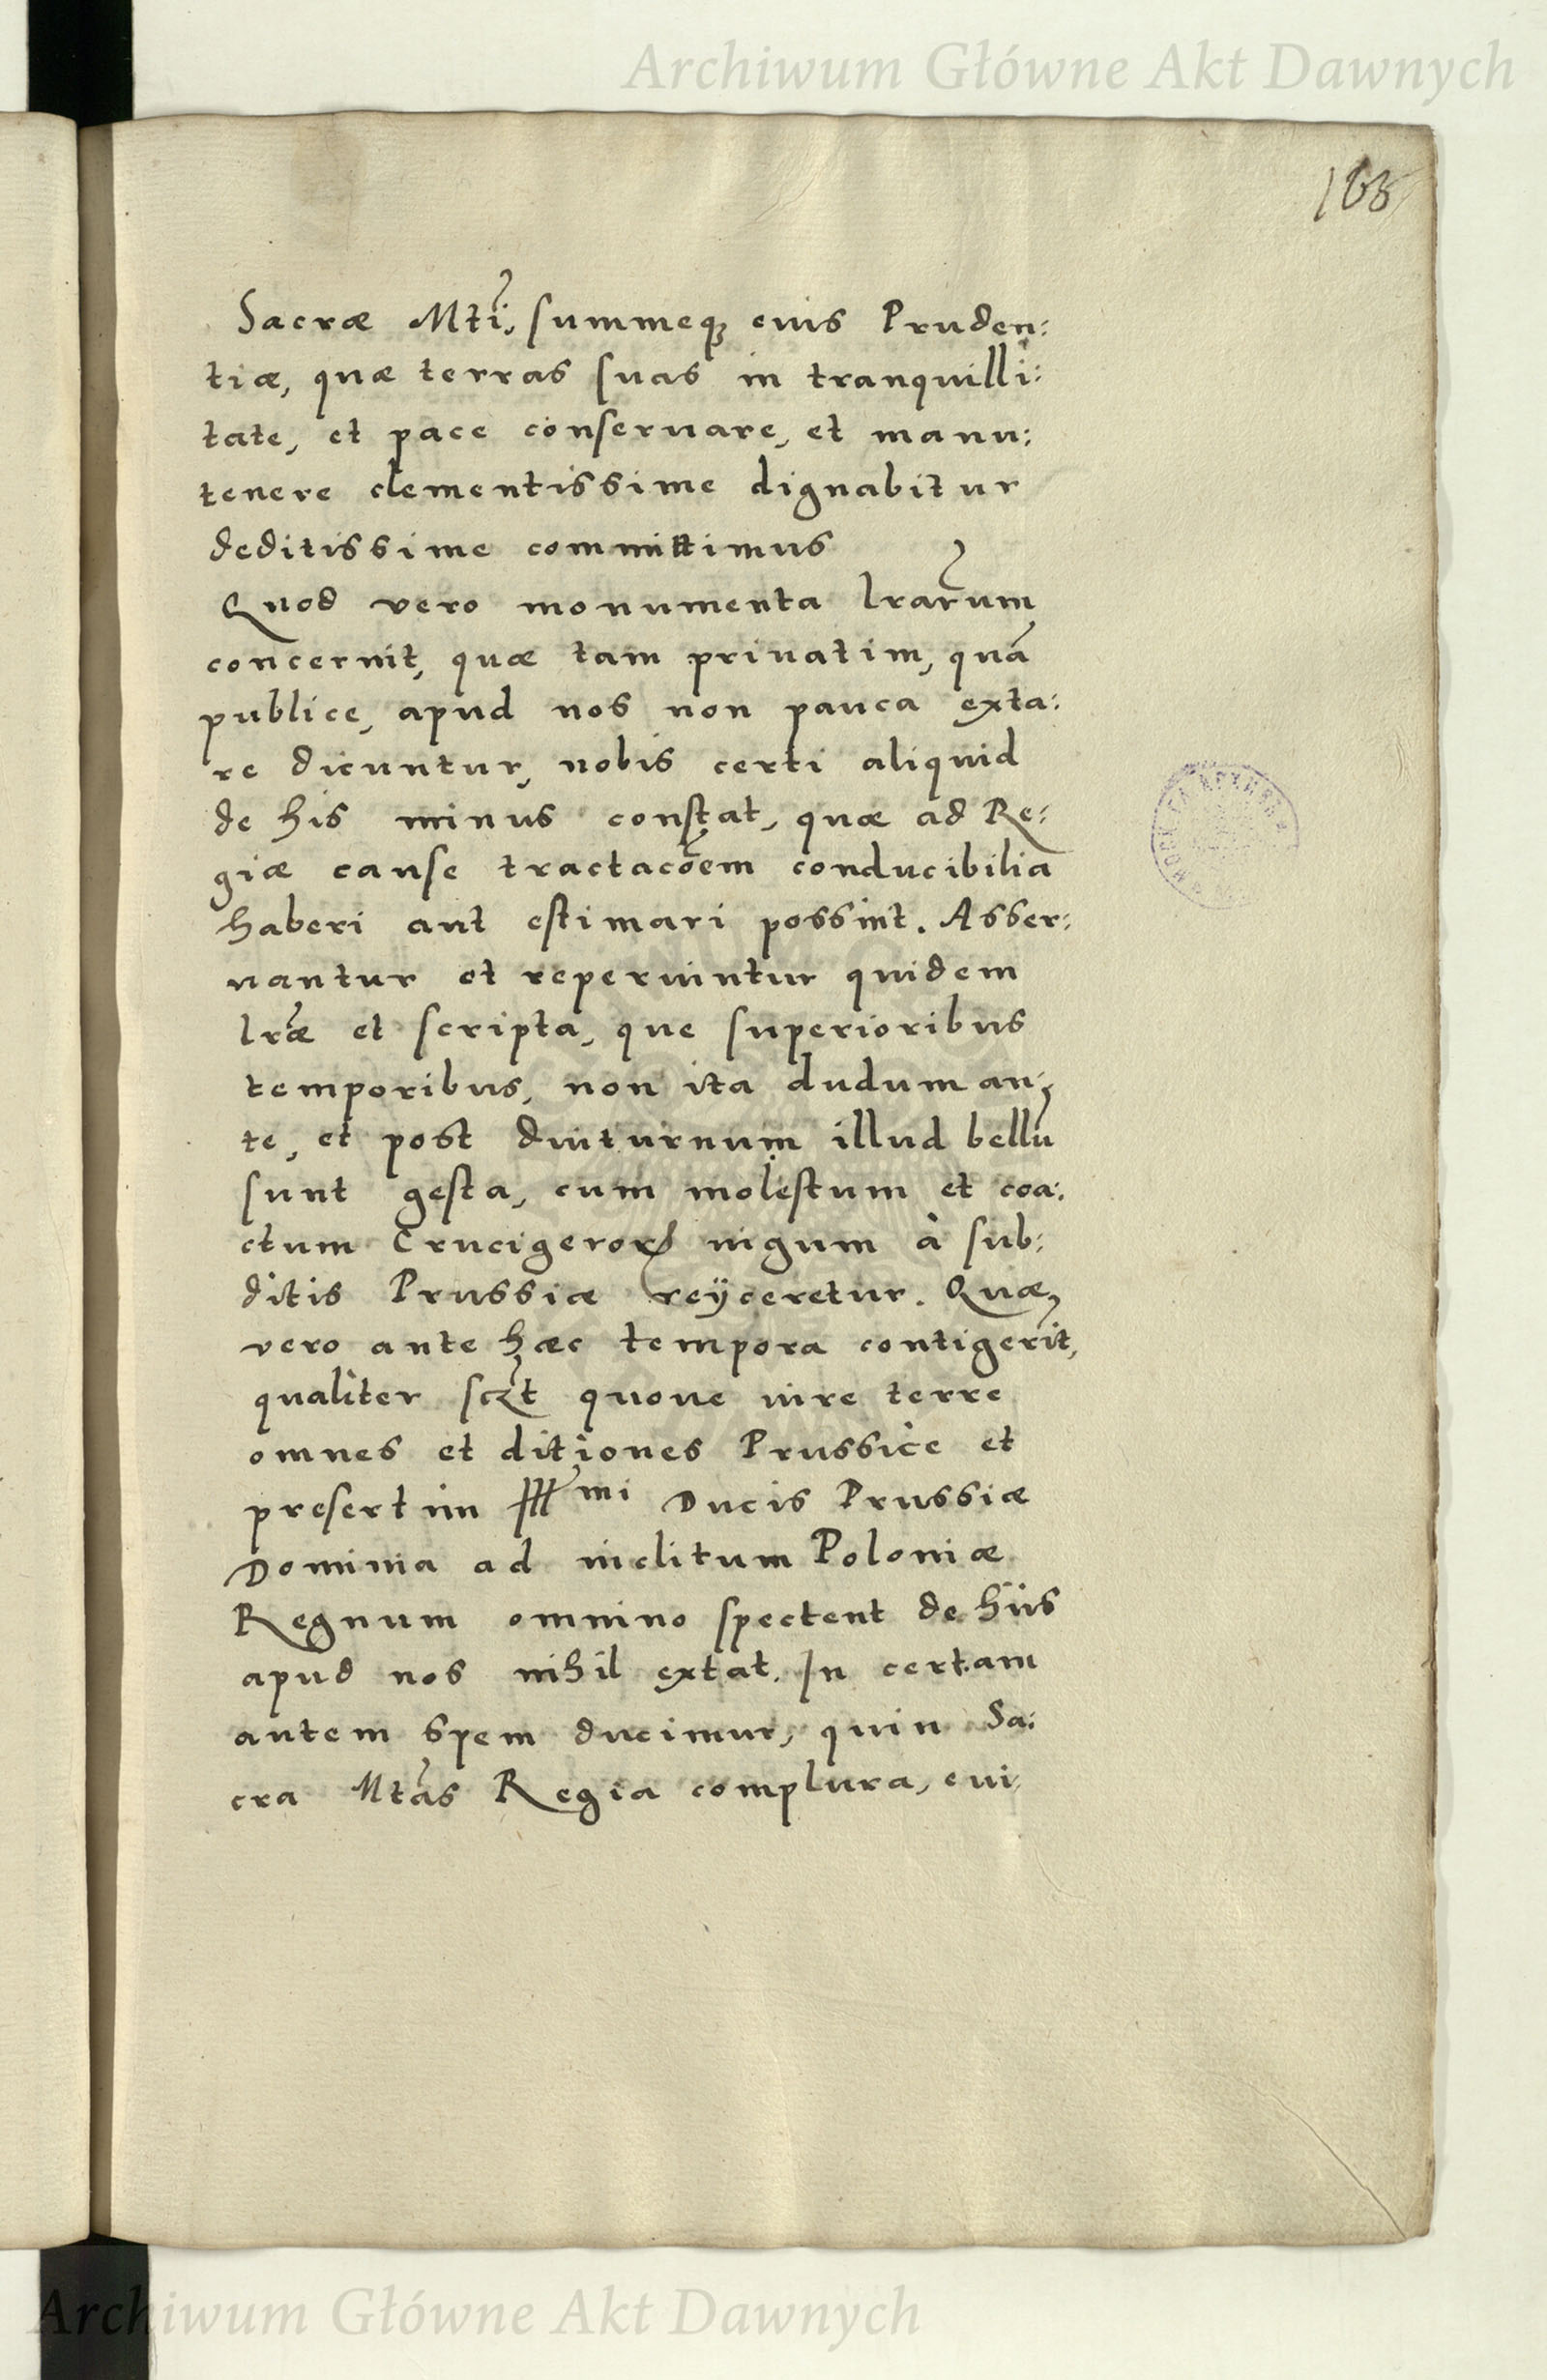 Archiwum Główne Akt Dawnych
165
Sacræ Mti, summeq; euis Pruden:
tiæ, quæ terras suas in tranquilli:
tate, et pace conseruare, et manu:
tenere clementissime dignabitur
deditissime committimus
Quod vero monumenta lrarum
concernit, quæ tam priuatim, quā
publice, apud nos non pauca exta:
re dicuntur, nobis certi aliquid
de his minus constat, quæ ad Re:
giæ cause tractacōem conducibilia
haberi aut estimari possint. Asser:
uantur et reperiuntur quidem
lræ et scripta, que superioribus
temporibus, non ita dudum an:
te, et post diuturnum illud bellū
sunt gesta, cum molestum et coa:
ctum Crucigeroꝝ iugum à sub:
ditis Prussiæ reÿceretur. Quæ
vero ante hæc tempora contigerīt,
qualiter sczt quoue iure terre
omnes et ditiones Prussice et
presertim mi Ducis Prussiæ
Dominia ad inclitum Poloniæ
Regnum omnino spectent de hiis
apud nos nihil extat. In certam
autem spem ducimur, quin Sa:
cra Mtas Regia complura, eui:
Archiwum Główne Akt Dawnych